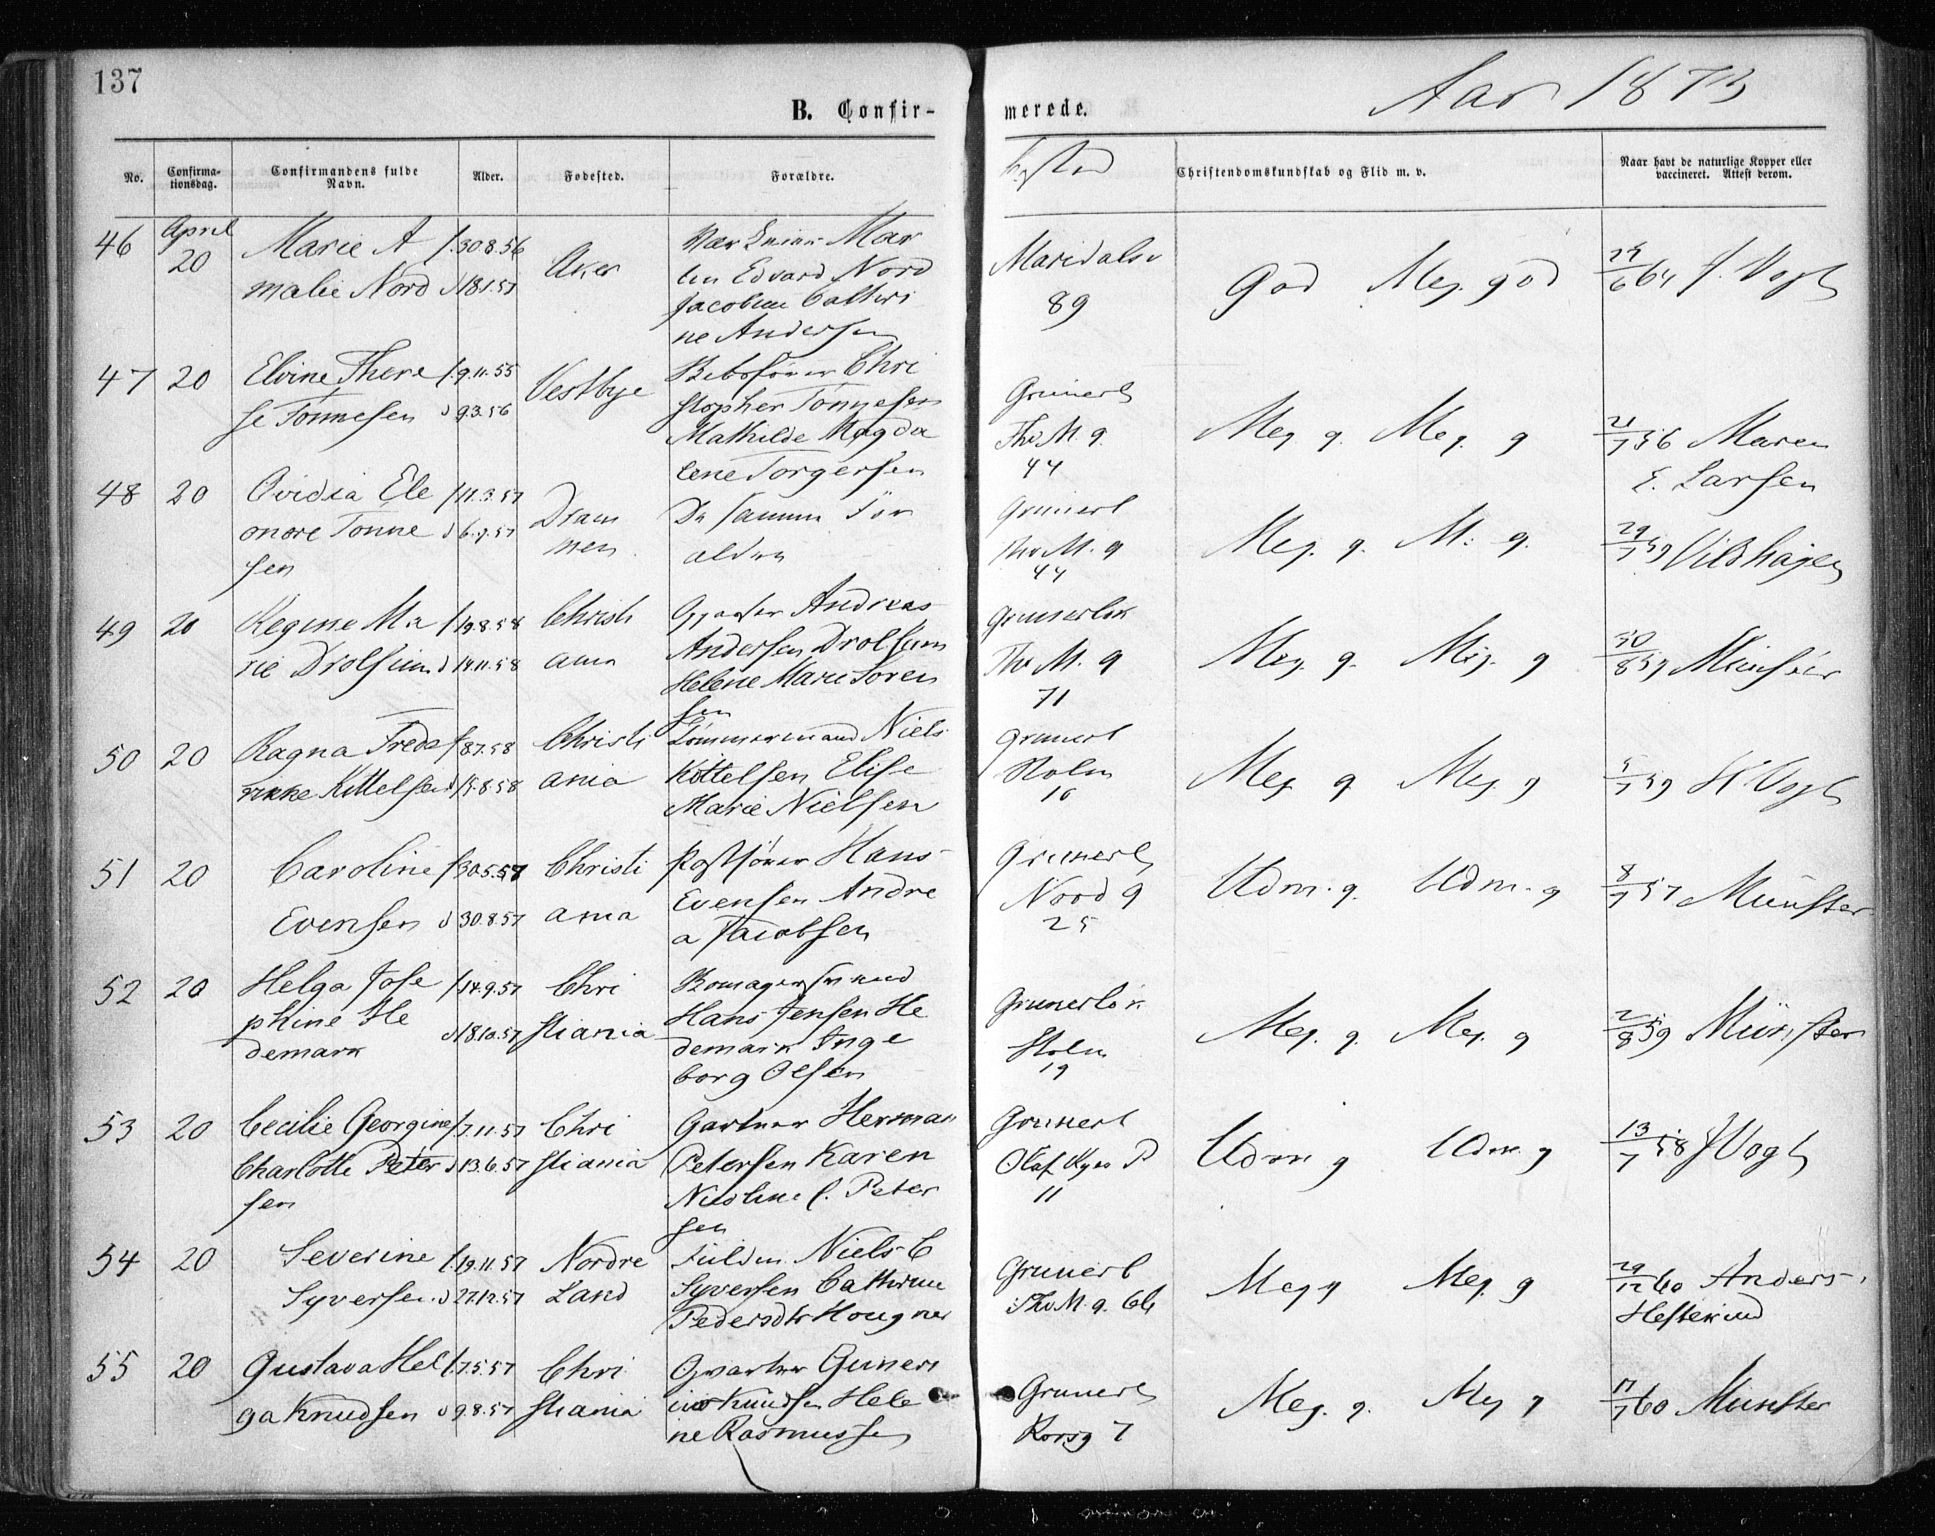 137
B. Confir-
merede.
Aar 1873
No.
Confirma-
tionsdag.
Confirmandens fulde
Navn.
Alder.
Fødested.
Forældre.
Bosted
Christendomskundskab og Flid m. v.
Naar havt de naturlige Kopper eller
vaccineret. Attest derom.
46 April 20
Marie A
malie Nord
f. 30.8.56
d 18.1.57
Aker
Mar
tin Edvard Nord
Jacobine Cathri
ne Andersen
Maridalsv
89
God Meg. god
29/6 64 J. Vogt
47 20
Elvine There
se Tønnesen
f. 9.11.55
d 9.3.56
Vestbye
Chri
stopher Tønnesen
Mathilde Magda
lene Torgersen
Grünerl
Thv M. g.
44
Meg. g. Meg. g
21/7 56 Maren
E. Larsen
48 20
Ovidia Ele
onore Tønne
sen
f 11.3.57
d 6.7.57
Dram
men
De samme For
ældre
Grünerl
Thv M. g
44
Meg. g. M. g.
29/7 59 Vibshagen
49 20
Regine Ma
rie Drolsum
f 19.8.58
d 14.11.58
Christi
ania
Andreas
Andersen Drolsum
Helene Marie Soren
sen
Grünerløk
Thv M. g
71
Meg. g. Meg. g
30/8 59 Münster
50 20
Ragna Frede
rikke Kittelsen
f 8.7.58
d 15.8.58
Christi
ania
Tømmermand Niels
Kittelsen Elise
Marie Nielsen
Grünerl
Holm
10
Meg. g Meg g
5/7 59 H Vogt
51 20
Caroline
Evensen
f 30.5.57
d 30.8.57
Christi
ania
Postfører Hans
Evensen Andre
a Jacobsen
Grünerl
Nord g
25
Udm. g. Udm. g
8/7 57 Münster
52 20
Helga Jose
phine He
demark
f 14.9.57
d 18.10.57
Chri
stiania
Hans Jensen He
demark Inge
borg Olsen
Grünerløk
Holm
19
Meg. g. Meg. g
2/8 59 Münster
53 20
Cecilie Georgine
Charlotte Peter
sen
f 7.11.57
d 13.6.57
Chri
stiania
Gartner Herman
Petersen Karen
Nicoline C. Peter
sen
Grünerl
Olaf Ryes P
11
Udm g Udm. g
13/7 58 J Vogt
54 20
Severine
Syversen
f. 19.11.57
d 27.12.57
Nordre
Land
Niels C
Syversen Cathrine
Pedersdtr Hougner
Grünerl
Thv M. g. 66
Meg g Meg. g
29/12 60 Anders
55 20
Gustava Hel
ga Knudsen
f. 7.5.57
d 9.8.57
Chri
stiania
Guneri
us Knudsen Hele
ne Rasmussen
Grünerl
Korsg 7
Meg. g. Meg g
17/7 60 Münster